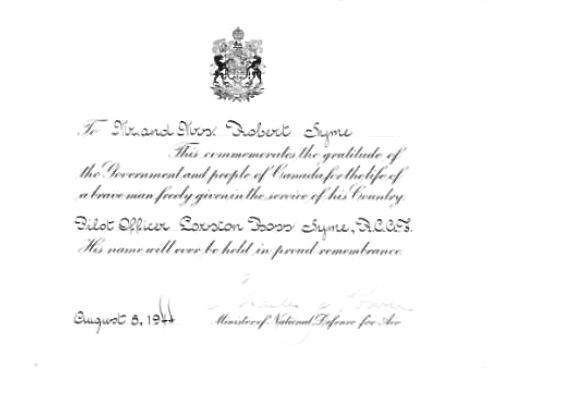 To Mr. and Mrs. Robert Syme
This commemorates the gratitude of
the Government and people of Canada for the life of
a brave man freely given in the service of his Country.
Pilot Officer Loxston Ross Syme, R.C.A.F.
His name will ever be held in proud remembrance.
August 3, 1944
Minister of National Defence for Air